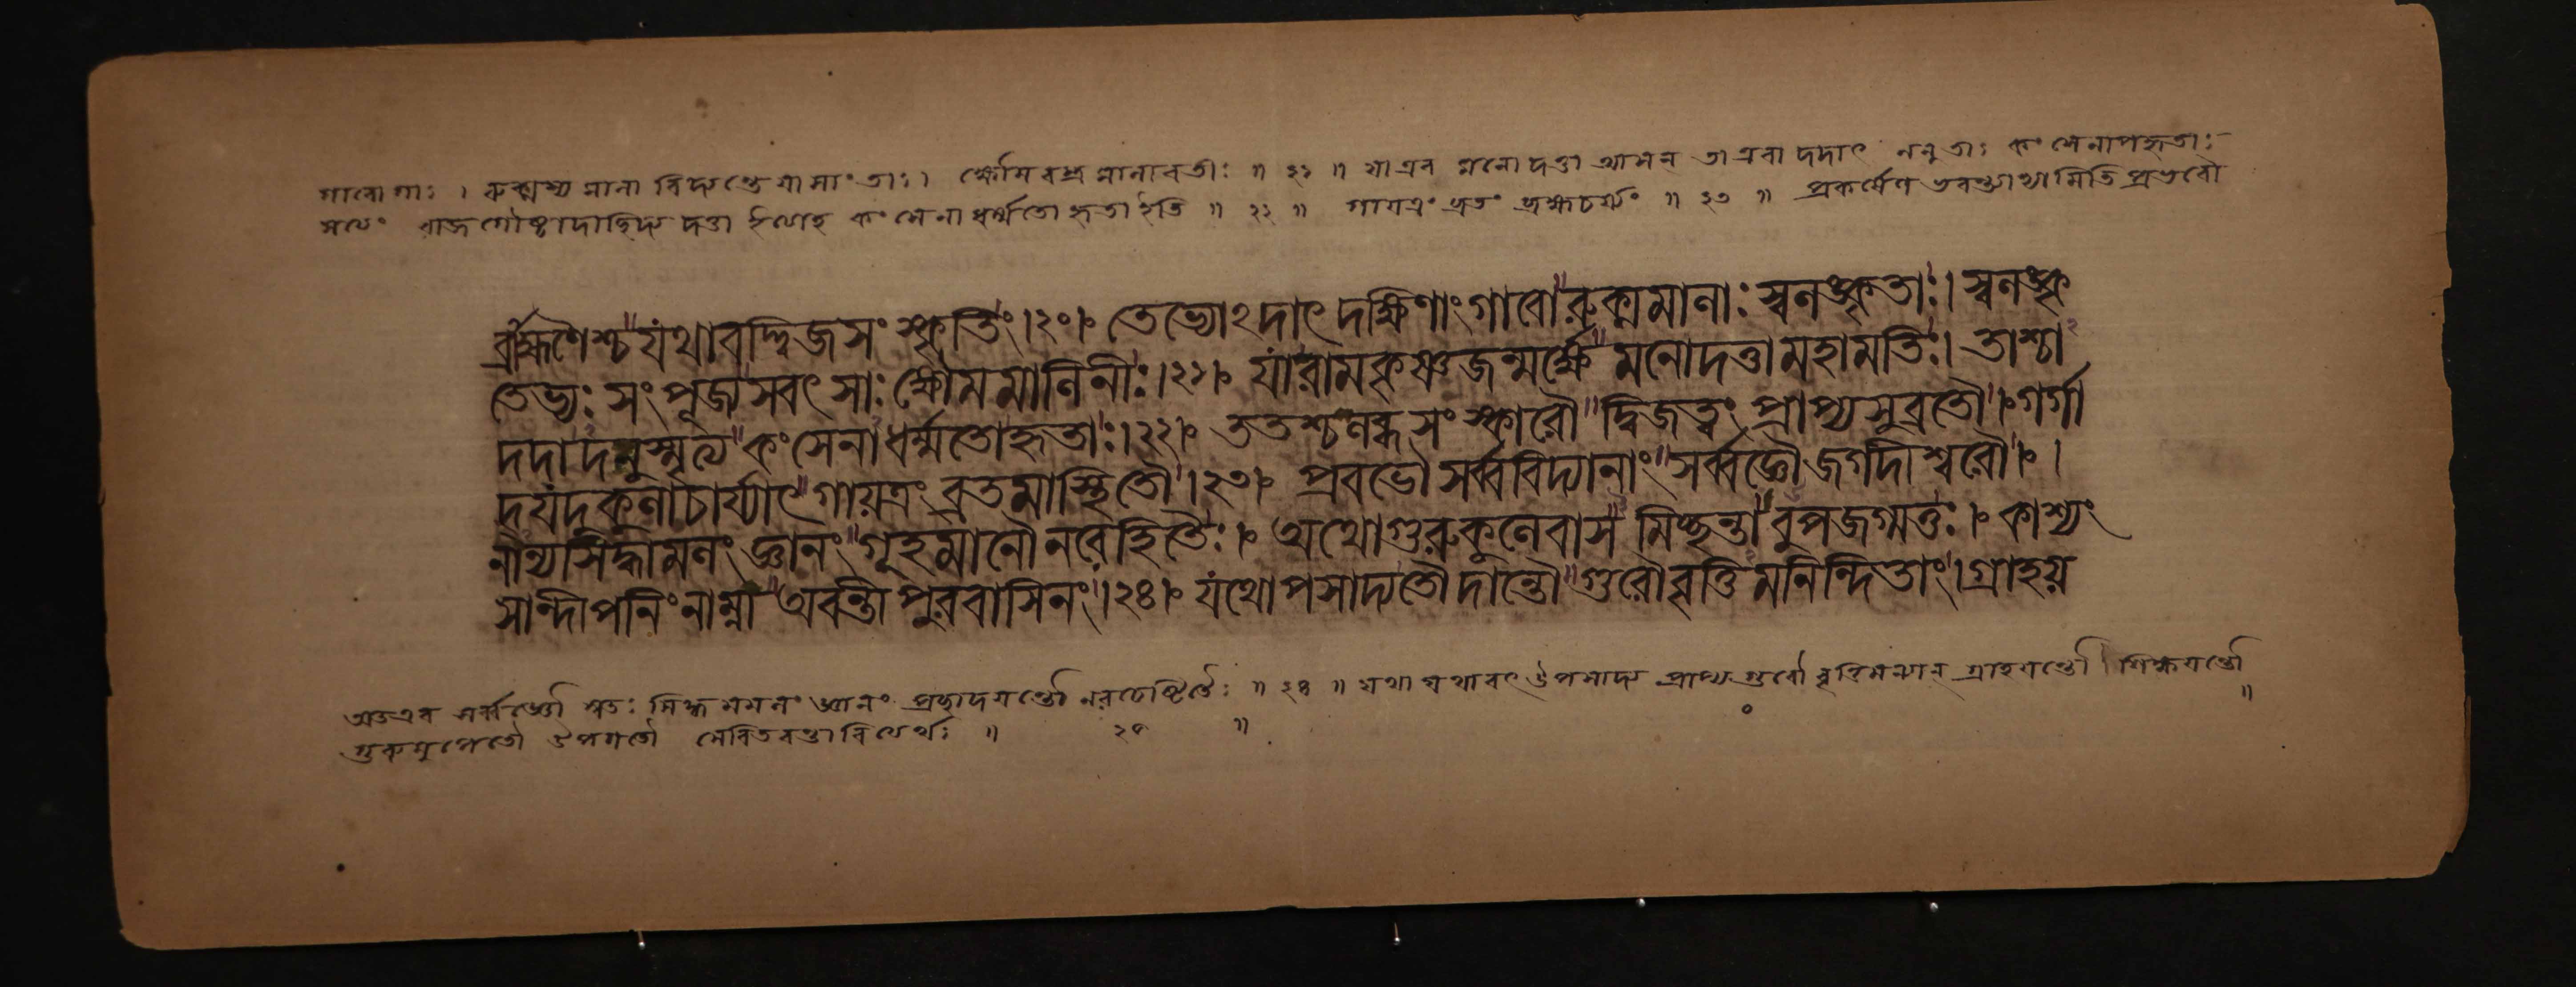 গাবোগাঃ । রুক্মস্য মালা বিদ্যন্তে যাসাং তাঃ । ক্ষৌমবস্ত্র মালাবতীঃ ॥ ২১ ॥ যা এব মনোদত্তা আসন তা এবা দদাৎ ননু তাঃ কংসেনাপহৃতাঃ
সত্যং রাজগোষ্ঠাদাচ্ছিদ্য দত্তা ইত্যাহ কংসেনা ধর্ম্মতো হৃতা ইতি ॥ ২২ ॥ গায়ত্রং ব্রতং ব্রহ্মচর্য্যং ॥ ২৩ ॥ প্রকর্ষেণ ভবন্ত্যাভ্যামিতি প্রভবৌ
র্ব্রাহ্মণৈশ্চ যথাবদ্দ্বিজসংস্কৃতিং ।২০। তেভ্যোঽদাৎ দক্ষিণাং গাবো রুক্মমালাঃ স্বলঙ্কৃতাঃ । স্বলঙ্কৃ
তেভ্যঃ সংপূজ্য সবৎসাঃ ক্ষৌমমালিনীঃ ।২১। যাঃ রামকৃষ্ণজন্মর্ক্ষে মনোদত্তা মহামতিঃ । তাশ্চা
দদাদনুস্মৃত্য কংসেনাধর্ম্মতোহৃতাঃ ।২২। ততশ্চ লব্ধসংস্কারৌ দ্বিজত্বং প্রাপ্য সুব্রতৌ । গর্গা
দ্যদুকুলাচার্য্যাৎ গায়ত্রং ব্রতমাস্থিতৌ ।২৩। প্রবভৌ সর্ব্ববিদ্যানাং সর্ব্বজ্ঞৌ জগদীশ্বরৌ । ।
নান্যসিদ্ধামলং জ্ঞানং গূহমানৌ নরেহিতৈঃ । অথো গুরুকুলে বাস মিচ্ছন্তা বুপজগ্মতুঃ । কাশ্যং
সান্দীপনিং নাম্না অবন্তীপুরবাসিনং ।২৪। যথোপসাদ্য তৌ দান্তৌ গুরৌ বৃত্তি মনিন্দিতাং । গ্রাহয়
অতএব সর্ব্বজ্ঞৌ স্বতঃ সিদ্ধ মমলং জ্ঞানং প্রচ্ছাদয়ন্তৌ নরচেষ্টিতৈঃ ॥ ২৪ ॥ যথা যথাবৎ উপসাদ্য প্রাপ্য গুরৌ বৃত্তিমন্যান্ গ্রাহয়ন্তৌ । শিক্ষয়ন্তৌ
গুরুমুপেতৌ উপগতৌ সেবিতবন্তাবিত্যর্থঃ ॥ ২৫ ॥